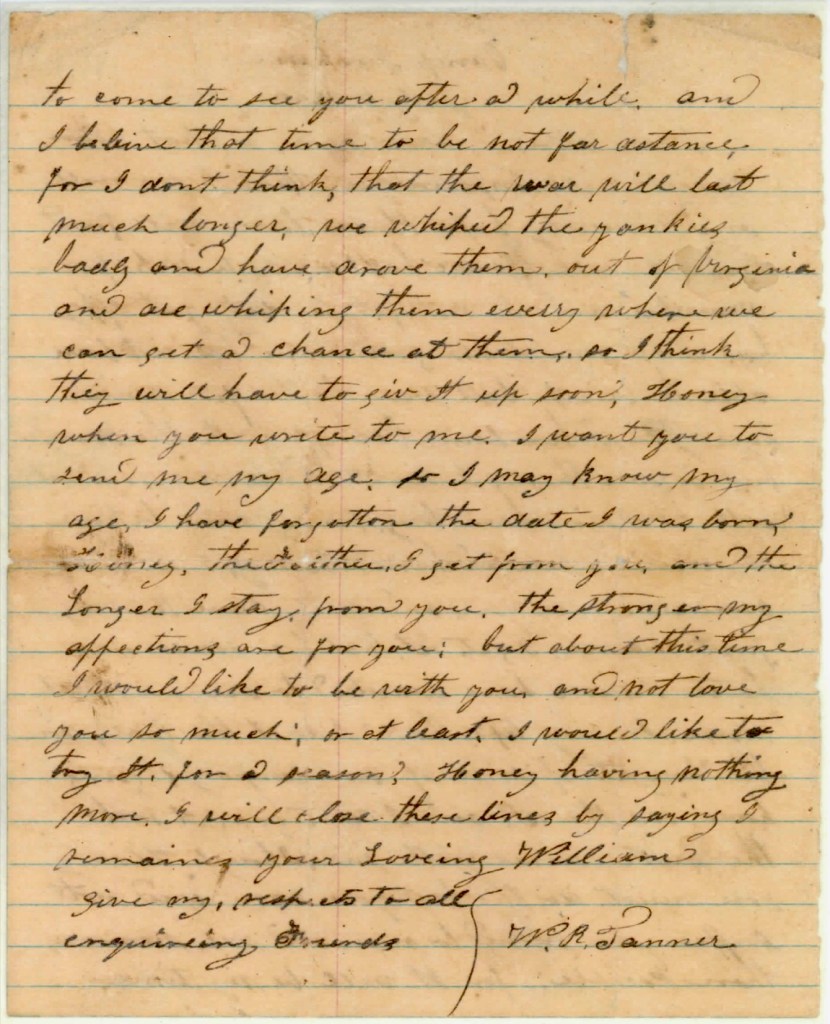 to come to see you after a while. and
I beleive that time to be not far astance,
for I dont think, that the war will last
much longer, we whiped the yankies
badly and have drove them, out of Virginia
and are whiping them every where we
can get a chance at them, so I think
they will have to giv it up soon, Honey
when you write to me. I want you to
send me my age. so I may know my
age, I have forgotton the date I was born,
Honey, the I get from you, and the
Longer I stay, from you, the stronger my
affections are for you; but about this time
I would like to be with you, and not love
you so much; or at least, I would like to
try it, for a season? Honey having nothing
more. I will close these lines by saying I
remaines your Loveing William
give my, respects to all
enquireing Friends
W. R. Tanner